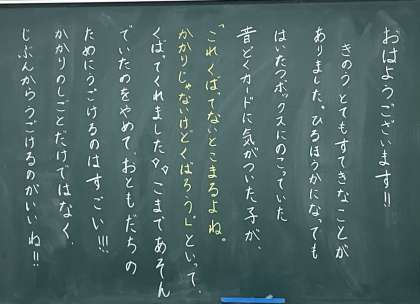 おはようございます!!
きのうとてもすてきなことが
ありました。ひるほうかになっても
はいたつボックスにのこっていた
音どくカードに気がついた子が、
「これくばてないとこまるよね。
かかりじゃないけどくばろう。」といって、
くばってくれました♪♪こまであそん
でいたのをやめて、おともだちの
ためにうごけるのはすごい!!!
かかりのしごとだけではなく、
じぶんからうごけるのがいいね!!